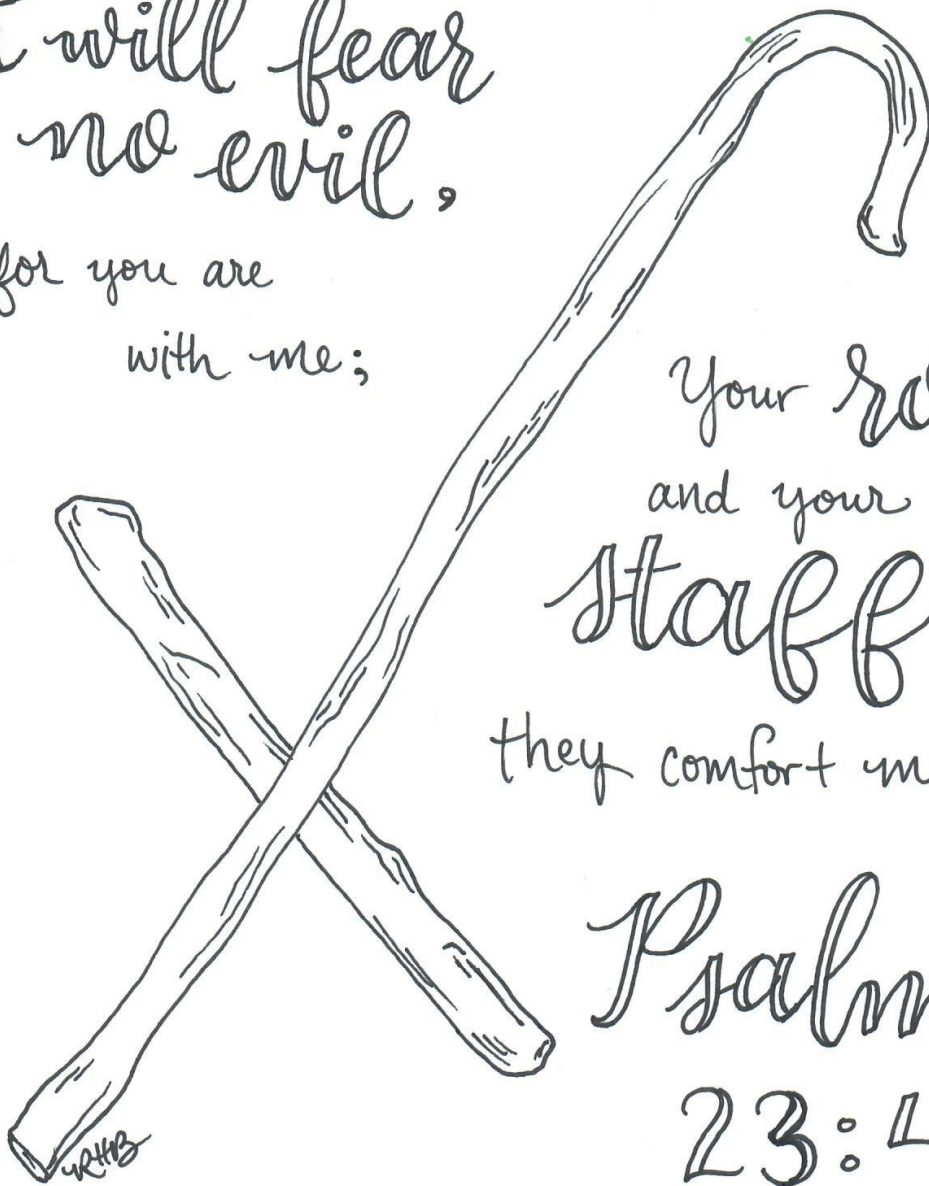 I will fear
no evil,
for you are
with me;
Your ro
and your
staff
they comfort m
Psalm
23:4